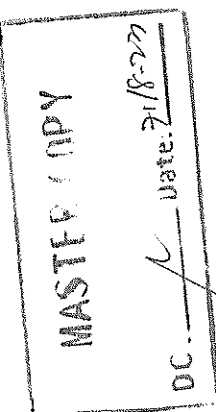 MASTER COPY
DC. Date: 21/8-